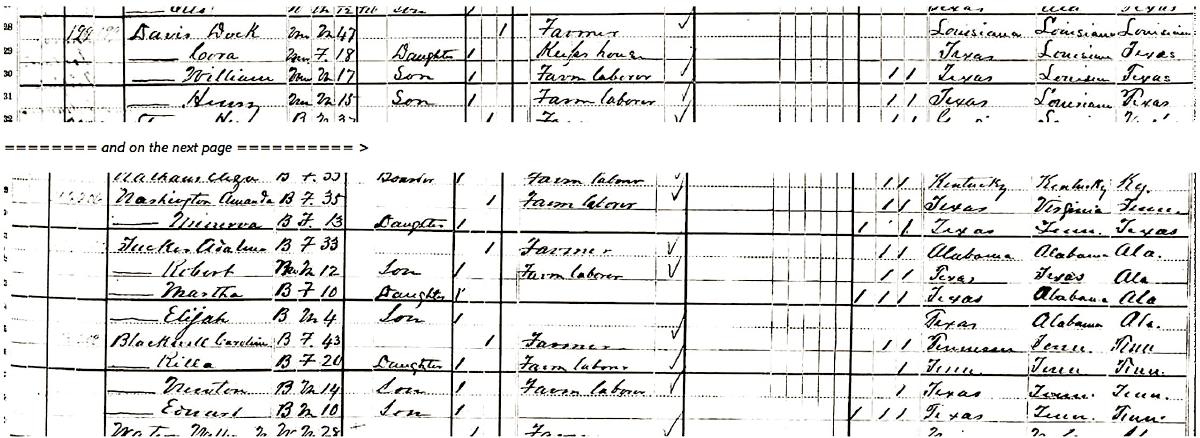 Son Texas Ala Texas
28 Davis Dock Mu M 47 1 Farmer ✓ Louisiana Louisiana Louisiana
29 —— Cora Mu F. 18 Daughter 1 Keeps house Texas Louisian Texas
30 —— William Mu M 17 Son 1 Farm laborer 1 1 Texas Louisian Texas
31 —— Henry Mu M 15 Son 1 Farm laborer ✓ 1 1 Texas Louisiana Texas
32 B M
======== and on the next page ========== >
B F. 33 Boarder 1 Farm labour ✓ 1 1 Kentucky Kentucky Ky.
Washington Amanda B F. 35 1 Farm laborer ✓ 1 1 Texas Virginia Tenn.
—— Minerva B F. 13 Daughter 1 1 1 Texas Tenn. Texas
Tucker B F 33 1 Farmer ✓ 1 1 Alabama Alabama Ala.
—— Robert Mu M 12 Son 1 Farm laborer ✓ 1 1 Texas Texas Ala
—— Martha B F 10 Daughter 1 1 1 1 Texas Alabama Ala
—— Elijah B M 4 Son 1 Texas Alabama Ala.
Blackwell Caroline B F. 43 1 Farmer ✓ 1 1 Tennessee Tenn. Tenn
—— Killa B F 20 Daughter 1 Farm laborer 1 Tenn. Tenn Tenn.
—— B M 14 Son 1 Farm laborer ✓ 1 Texas Tenn. Tenn.
—— Edward B M 10 Son 1 1 1 1 Texas Tenn. Tenn.
M 28 1